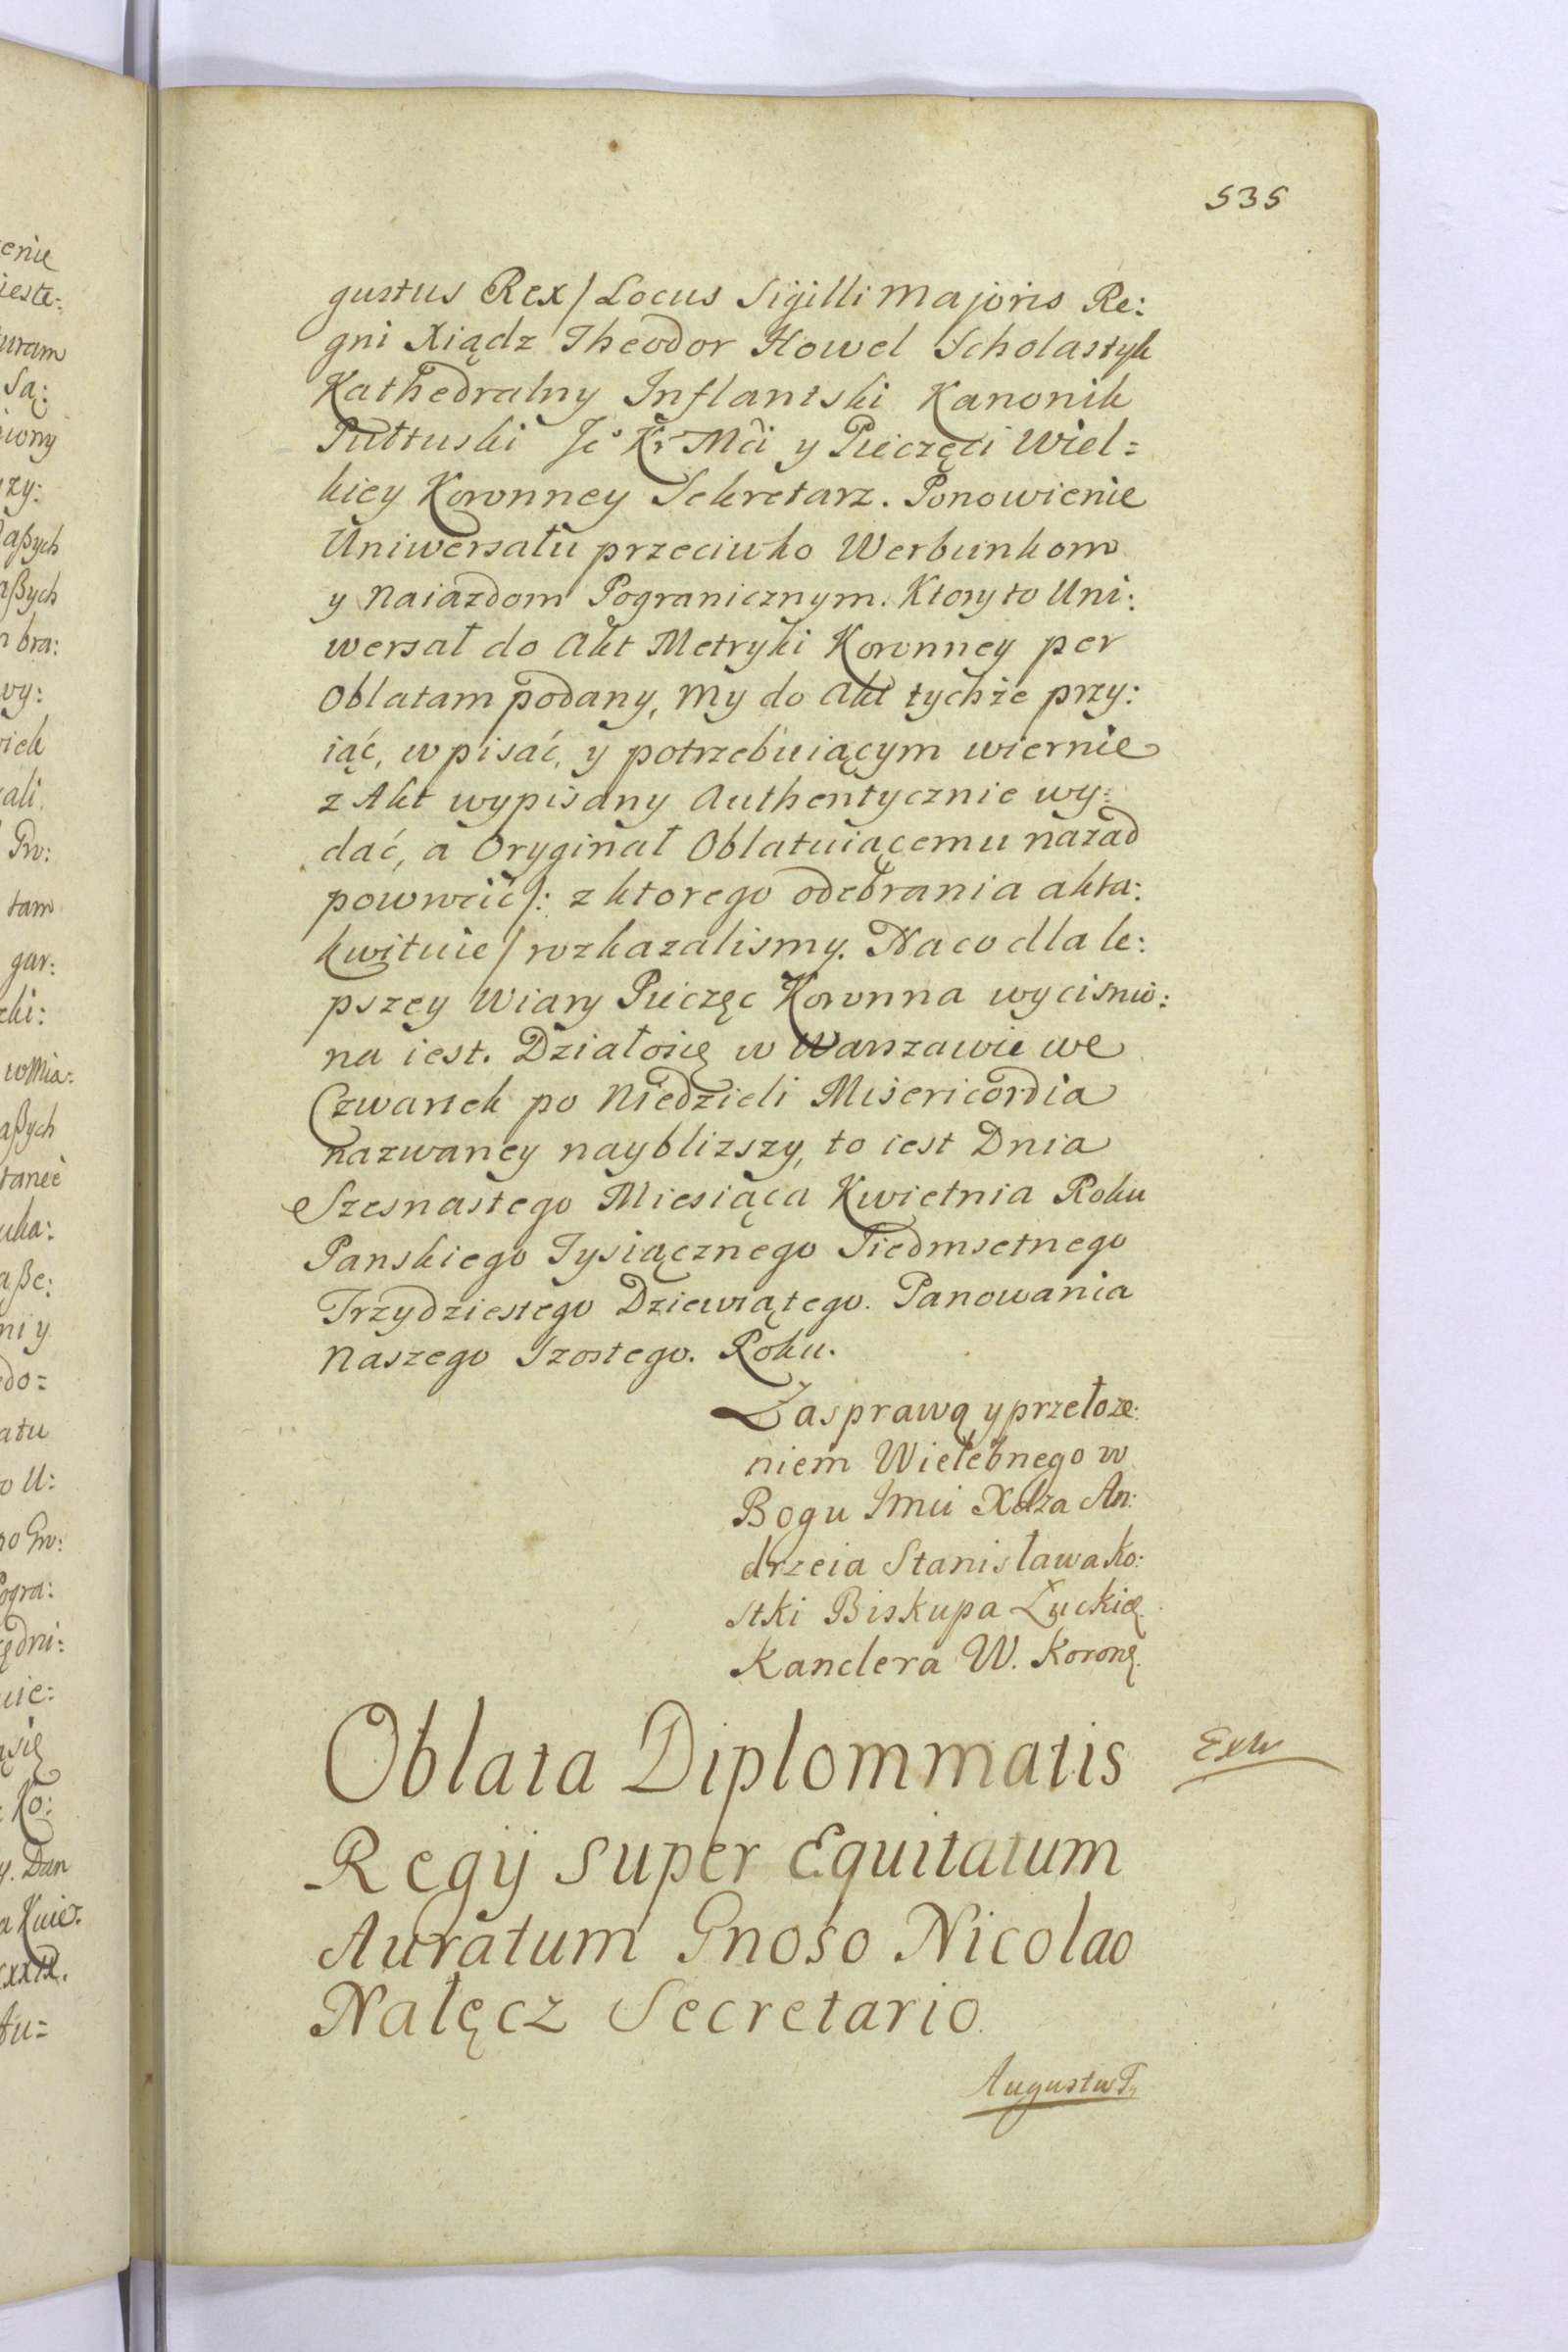 535
gustus Rex/ Locus Sigilli Majoris Re:
gni Xiądz Theodor Howel Scholastyk
Kathedralny Inflantski Kanonik
Pułtuski Jo Kr Mci y Pieczęci Wiel=
kiey Koronney Sekretarz. Ponowienie
Uniwersału przeciwko Werbunkom
y Naiazdom Pogranicznym. Ktory to Uni:
wersał do Akt Metryki Koronney per
Oblatam podany, My do Akt tychże przy:
iąć, wpisać, y potrzebuiącym wiernie
z Akt wypisany Authentycznie wy:
dać, a Oryginał Oblatuiącemu nazad
powrocić/: z ktorego odebrania akta:
kwituie/ rozkazalismy. Na co dla le:
pszey Wiary Pieczęc Koronna wycisnio:
na iest. Działosię w Warszawie we
Czwartek po Niedzieli Misericordia
nazwaney nayblizszy, to iest Dnia
Szesnastego Miesiąca Kwietnia Roku
Panskiego Tysiącznego Siedmsetnego
Trzydziestego Dziewiątego. Panowania
Naszego Szostego. Roku.
Za sprawą y przełoże:
niem Wielebnego w
Bogu Jmci Xdza An:
drzeia Stanisława Ko:
stki Biskupa Łuckię
Kanclera W. Koronę.
Oblata Diplommatis
Regij super Equitatum
Auratum Gnoso Nicolao
Nałęcz Secretario.
Augustus T,
enie
ieste:
uram
są:
iony
zy:
aßych
aßych
bra:
wy:
ali
Pro:
tam
gar:
w Mia:
aßych
tanie
uka:
aße:
ni y
do=
atu
o U:
ogra:
ędni:
uie:
się
Ko:
y. Dan
xxix.
Au=